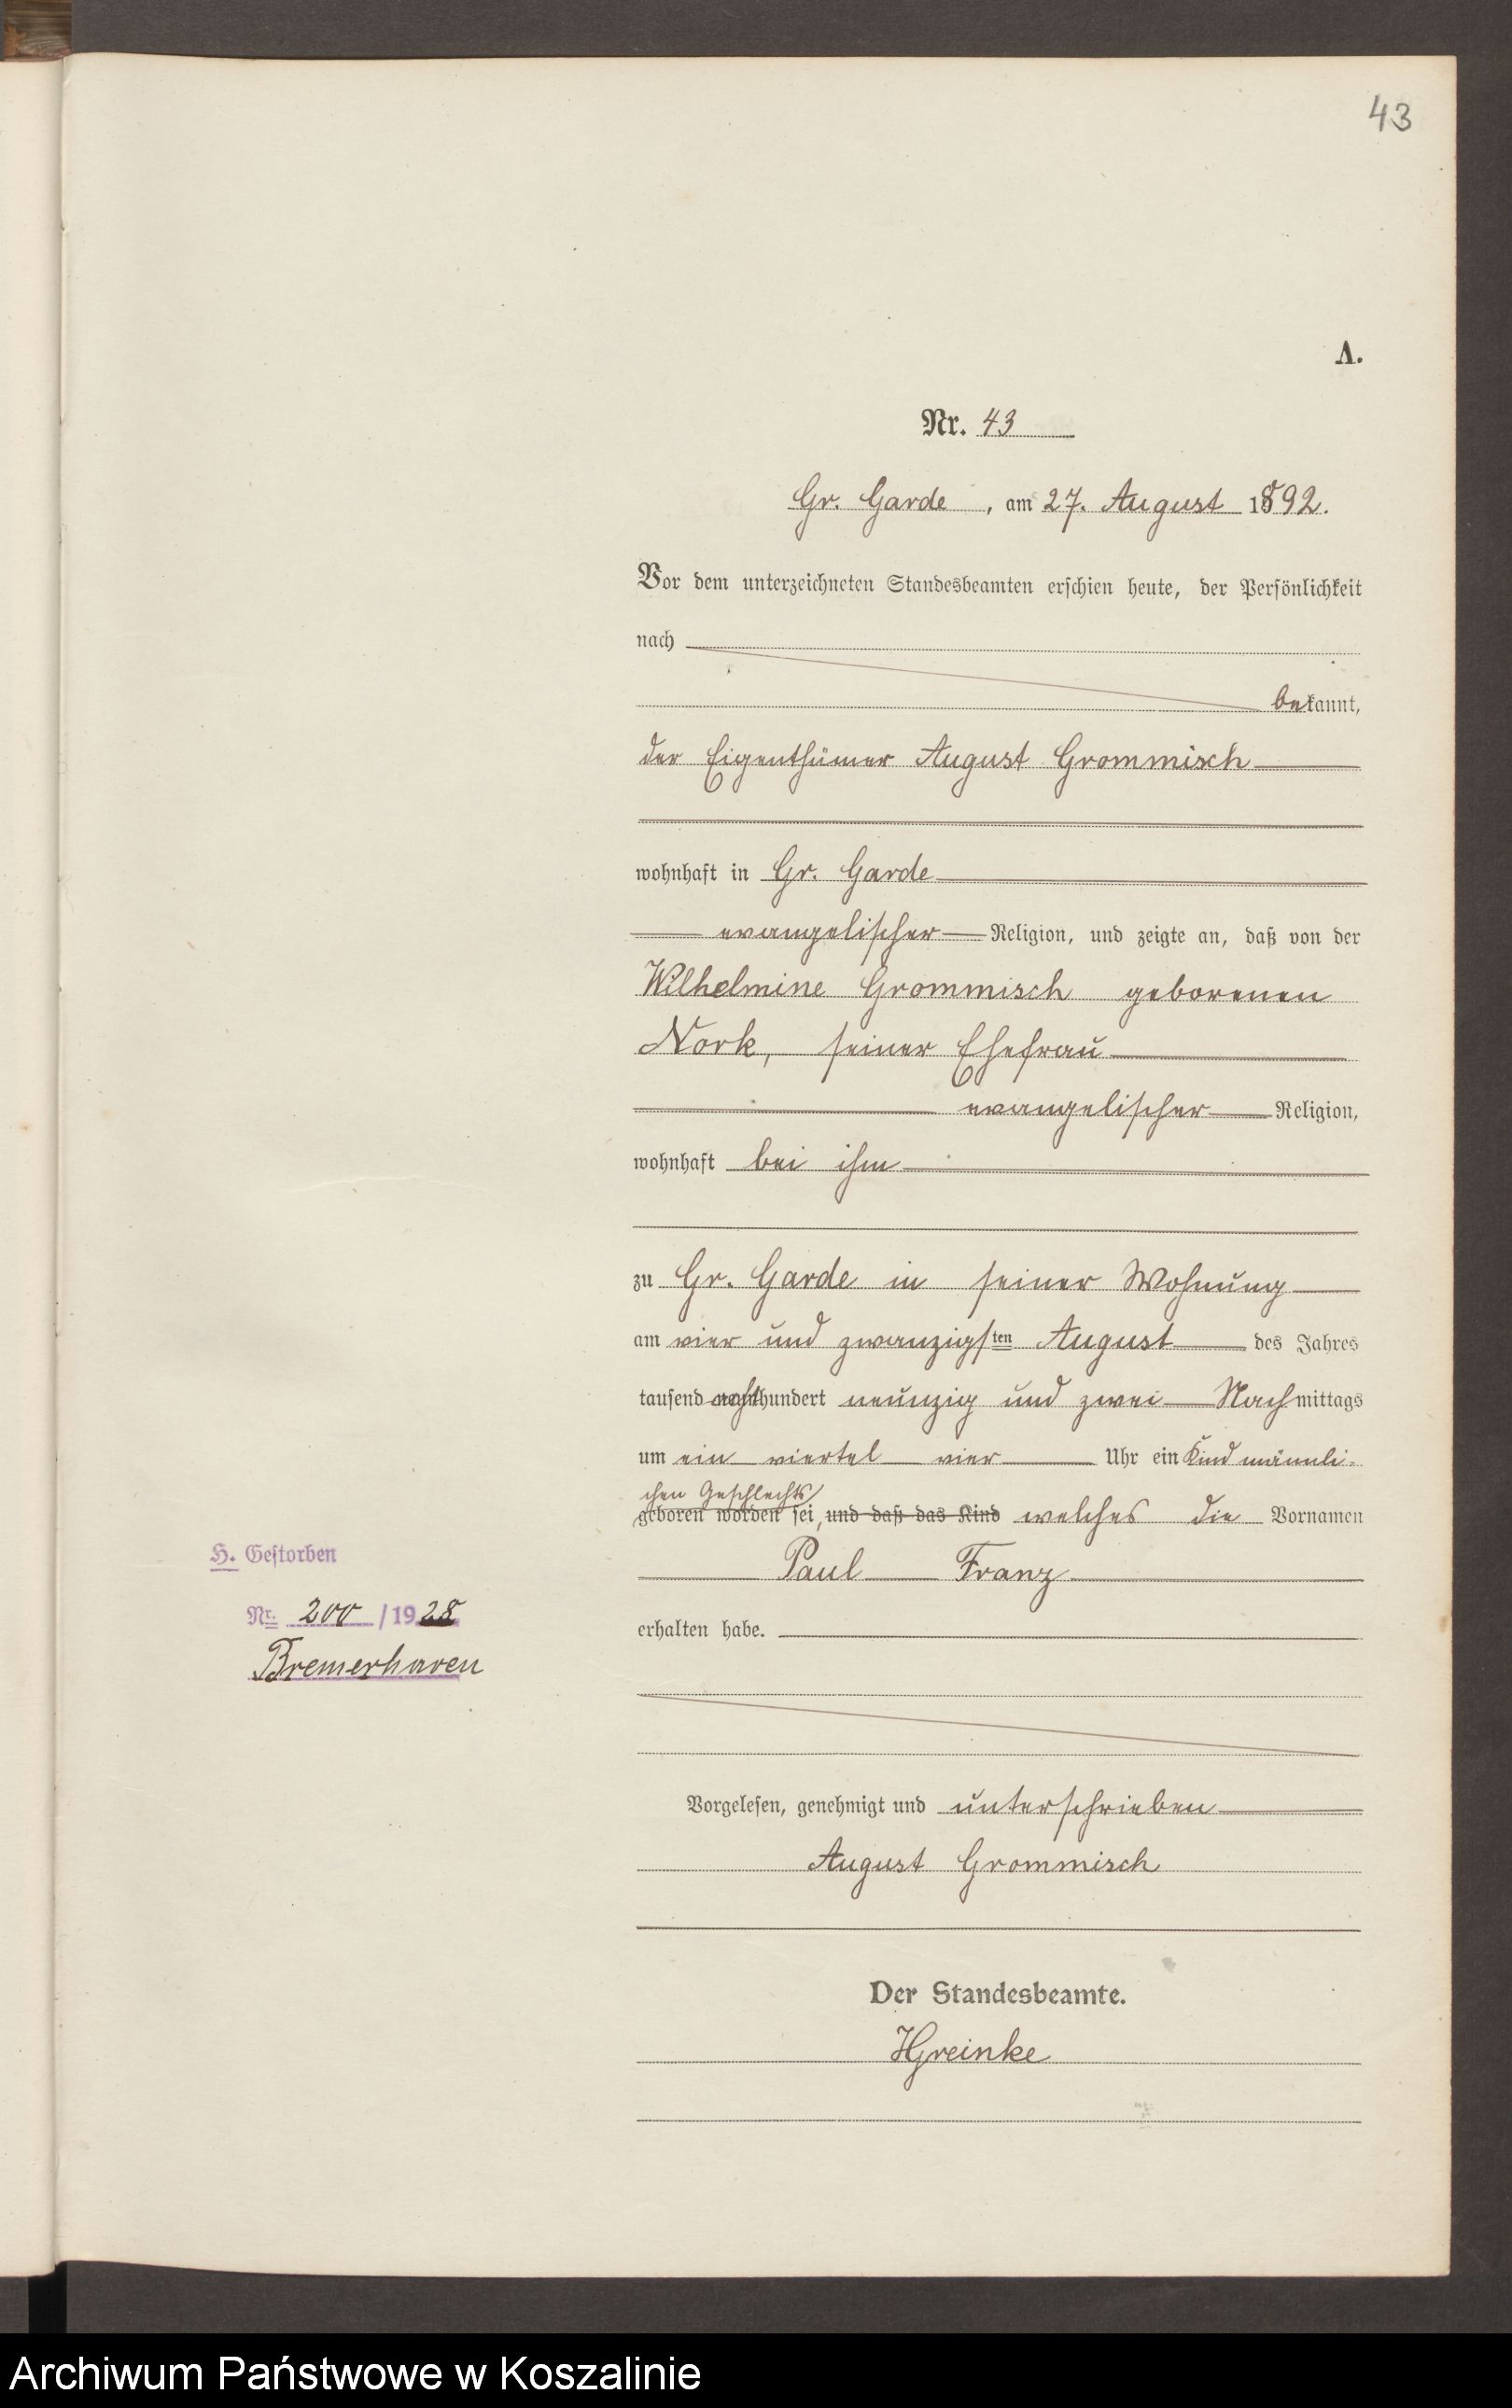 43
A.
Nr. 43
Gr. Garde, am 27. August 1892.
Vor dem unterzeichneten Standesbeamten erschien heute, der Persönlichkeit
nach
bekannt,
der Eigenthümer August Grommisch
wohnhaft in Gr. Garde
evangelischer Religion, und zeigte an, daß von der
Wilhelmine Grommisch geborenen
Nork, seiner Ehefrau
evangelischer Religion,
wohnhaft bei ihm
zu Gr. Garde in seiner Wohnung
am vier und zwanzigsten August des Jahres
tausend achthundert neunzig und zwei Nachmittags
um ein viertel vier Uhr ein Kind männli-
chen Geschlechts
geboren worden sei, und daß das Kind welches die Vornamen
Paul Franz
erhalten habe.
Vorgelesen, genehmigt und unterschrieben
August Grommisch
Der Standesbeamte.
HGreinke
H. Gestorben
Nr. 200/1928
Bremerhaven
Archiwum Państwowe w Koszalinie